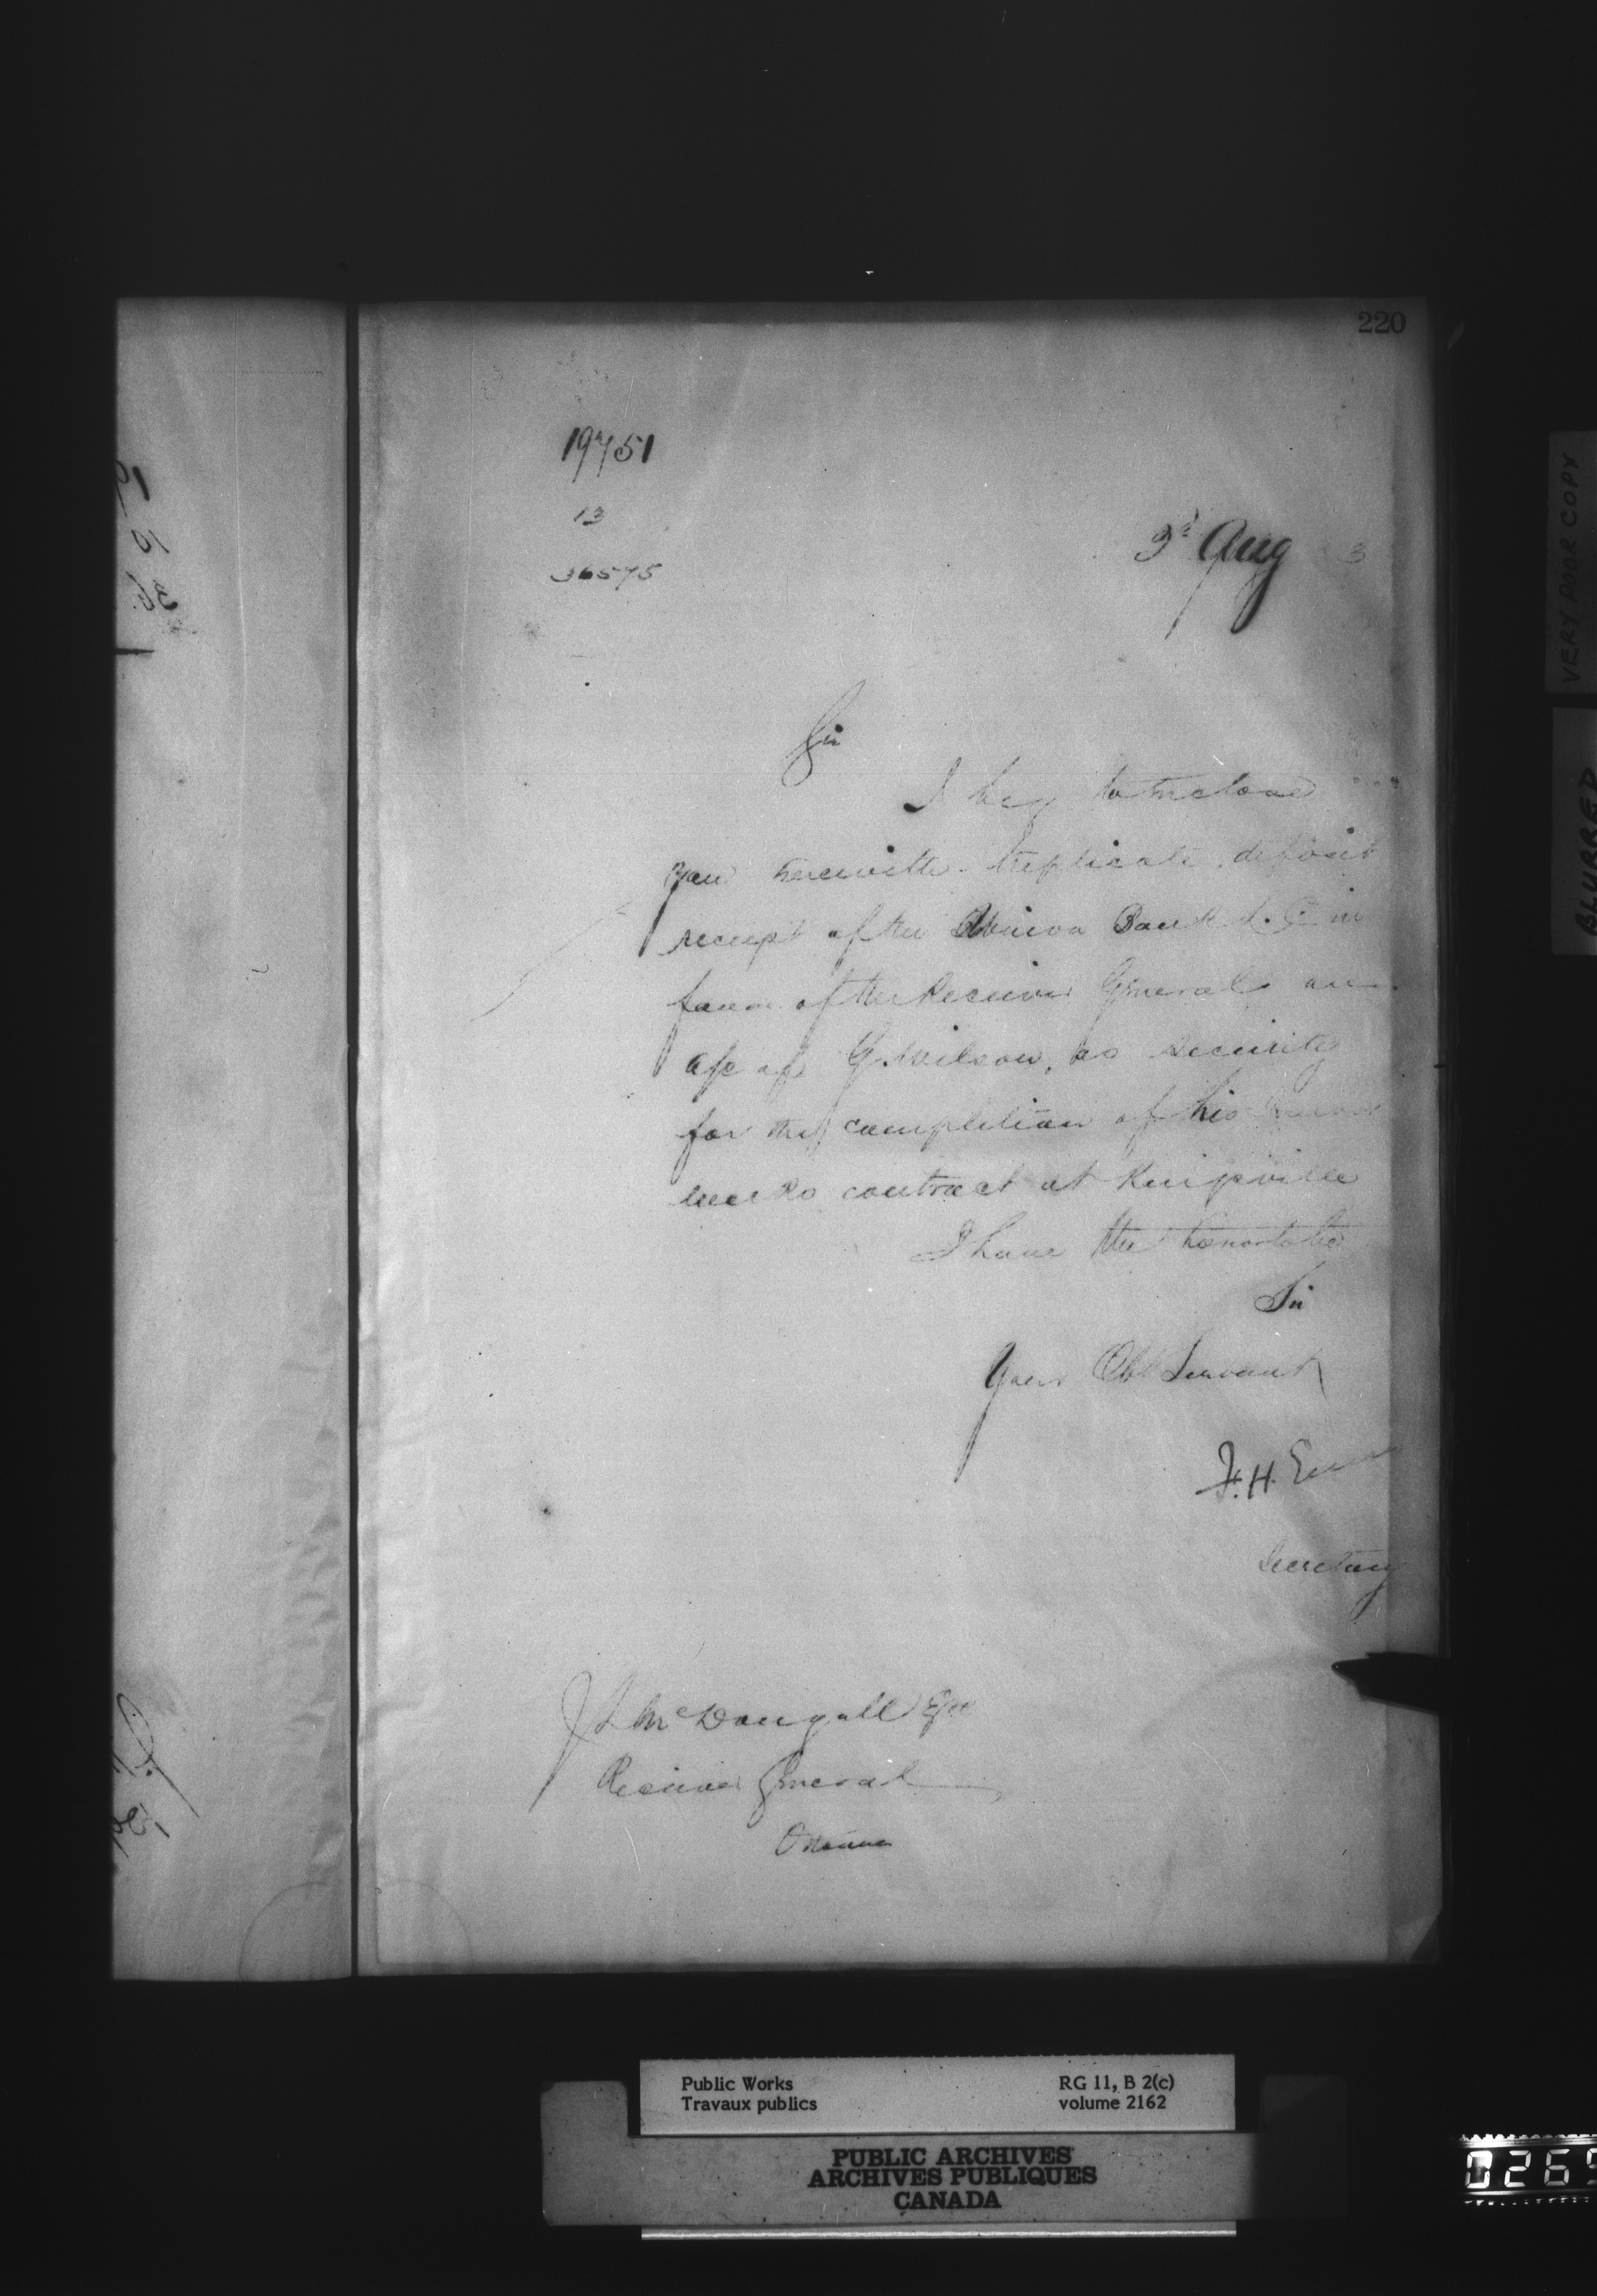 220
19751
13
36575
3d Aug 3
Sir
I beg to inclose
you herewith triplicate deposit
receipt of the Union Bank L.C. in
favor of the Receiver General on
a/c of G. Wilson, as security
for the completion of his
works contract at
I have the honor to be
Sir
Your Obt Servant
F. H. Ennis
Secretary
McDougall Esqr
Receiver General
Ottawa
VERY POOR COPY
BLURRED
Public Works RG 11, B 2(c)
Travaux publics volume 2162
PUBLIC ARCHIVES
ARCHIVES PUBLIQUES
CANADA
0265